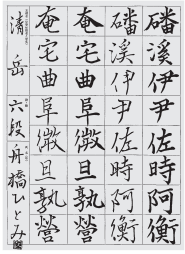 磻溪伊尹佐時阿衡
磻溪伊尹佐時阿衡
奄宅曲阜微旦孰營
奄宅曲阜微旦孰營
清岳 六段 舟橋ひとみ